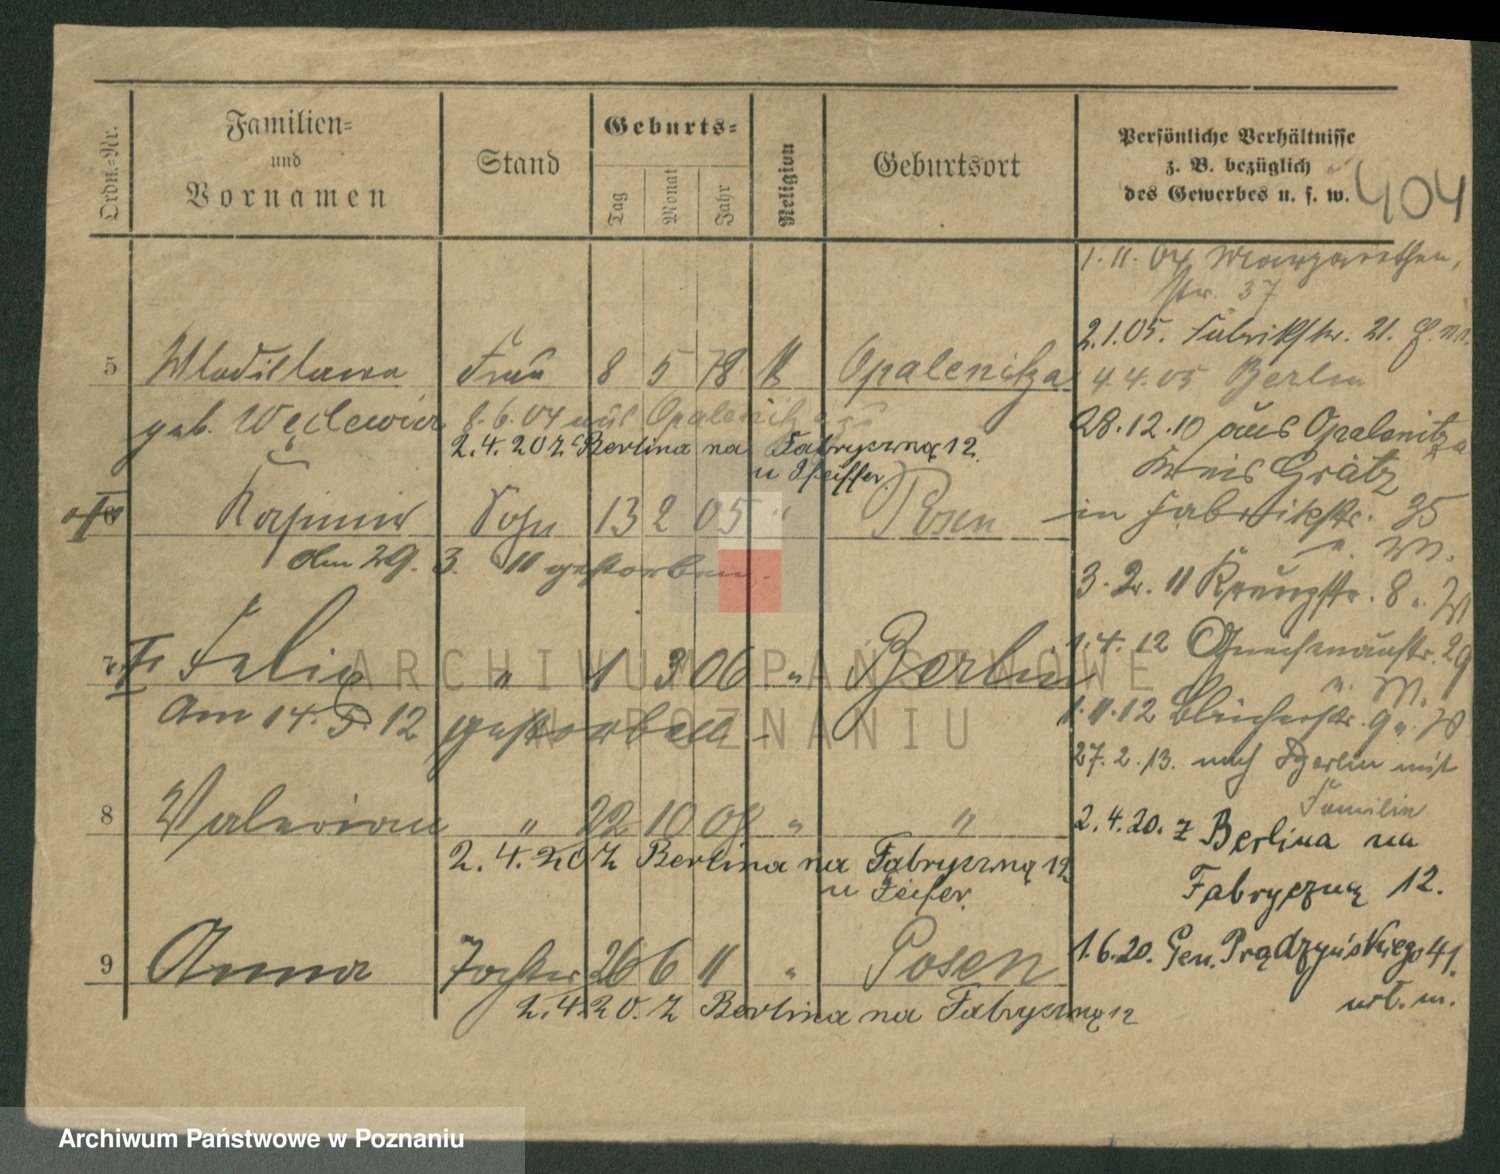 Ordn.=Nr.
Familien=
und
Vornamen
Stand
Geburts=
Tag
Monat
Jahr
Religion
Geburtsort
Persönliche Verhältnisse
z. B. bezüglich
des Gewerbes u. s. w.
404
1. 11. 04 Margarethen,
str. 37
2.1.05. Fabrikstr. 21.
5 Wladislawa Frau 8 5 78 K Opalenitza
4.4.05 Berlin
geb. 8.6.04 aus Opalenitza
28.12.10 aus Opalenitza
2.4.20 z Berlina na Fabryczną 12
u Pfeiffer.
Kreis Grätz
6 Kasimir Sohn 13 2 05 " Posen
in Fabrikstr. 35
u. W.
den 29. 3. 11 gestorben.
3. 2. 11 Kreuzstr. 8
7 Felix " 1 3 06 " Berlin
1.4.12 29
u. W.
Am 14. 5. 12 gestorben
1.11.12 Blücherstr. 9
27.2.13. nach Berlin mit
Familie
8 Valerian " 22 10 08 " "
2.4.20. z Berlina na
2.4.20 z Berlina na Fabryczną 12
u Feifer.
Fabryczną 12.
9 Anna Tochter 26 6 11 " Posen
1.6.20. Gen. Prądzyńskiego 41.
2.4.20. z Berlina na Fabryczną 12
ARCHIWUM PAŃSTWOWE
W POZNANIU
Archiwum Państwowe w Poznaniu